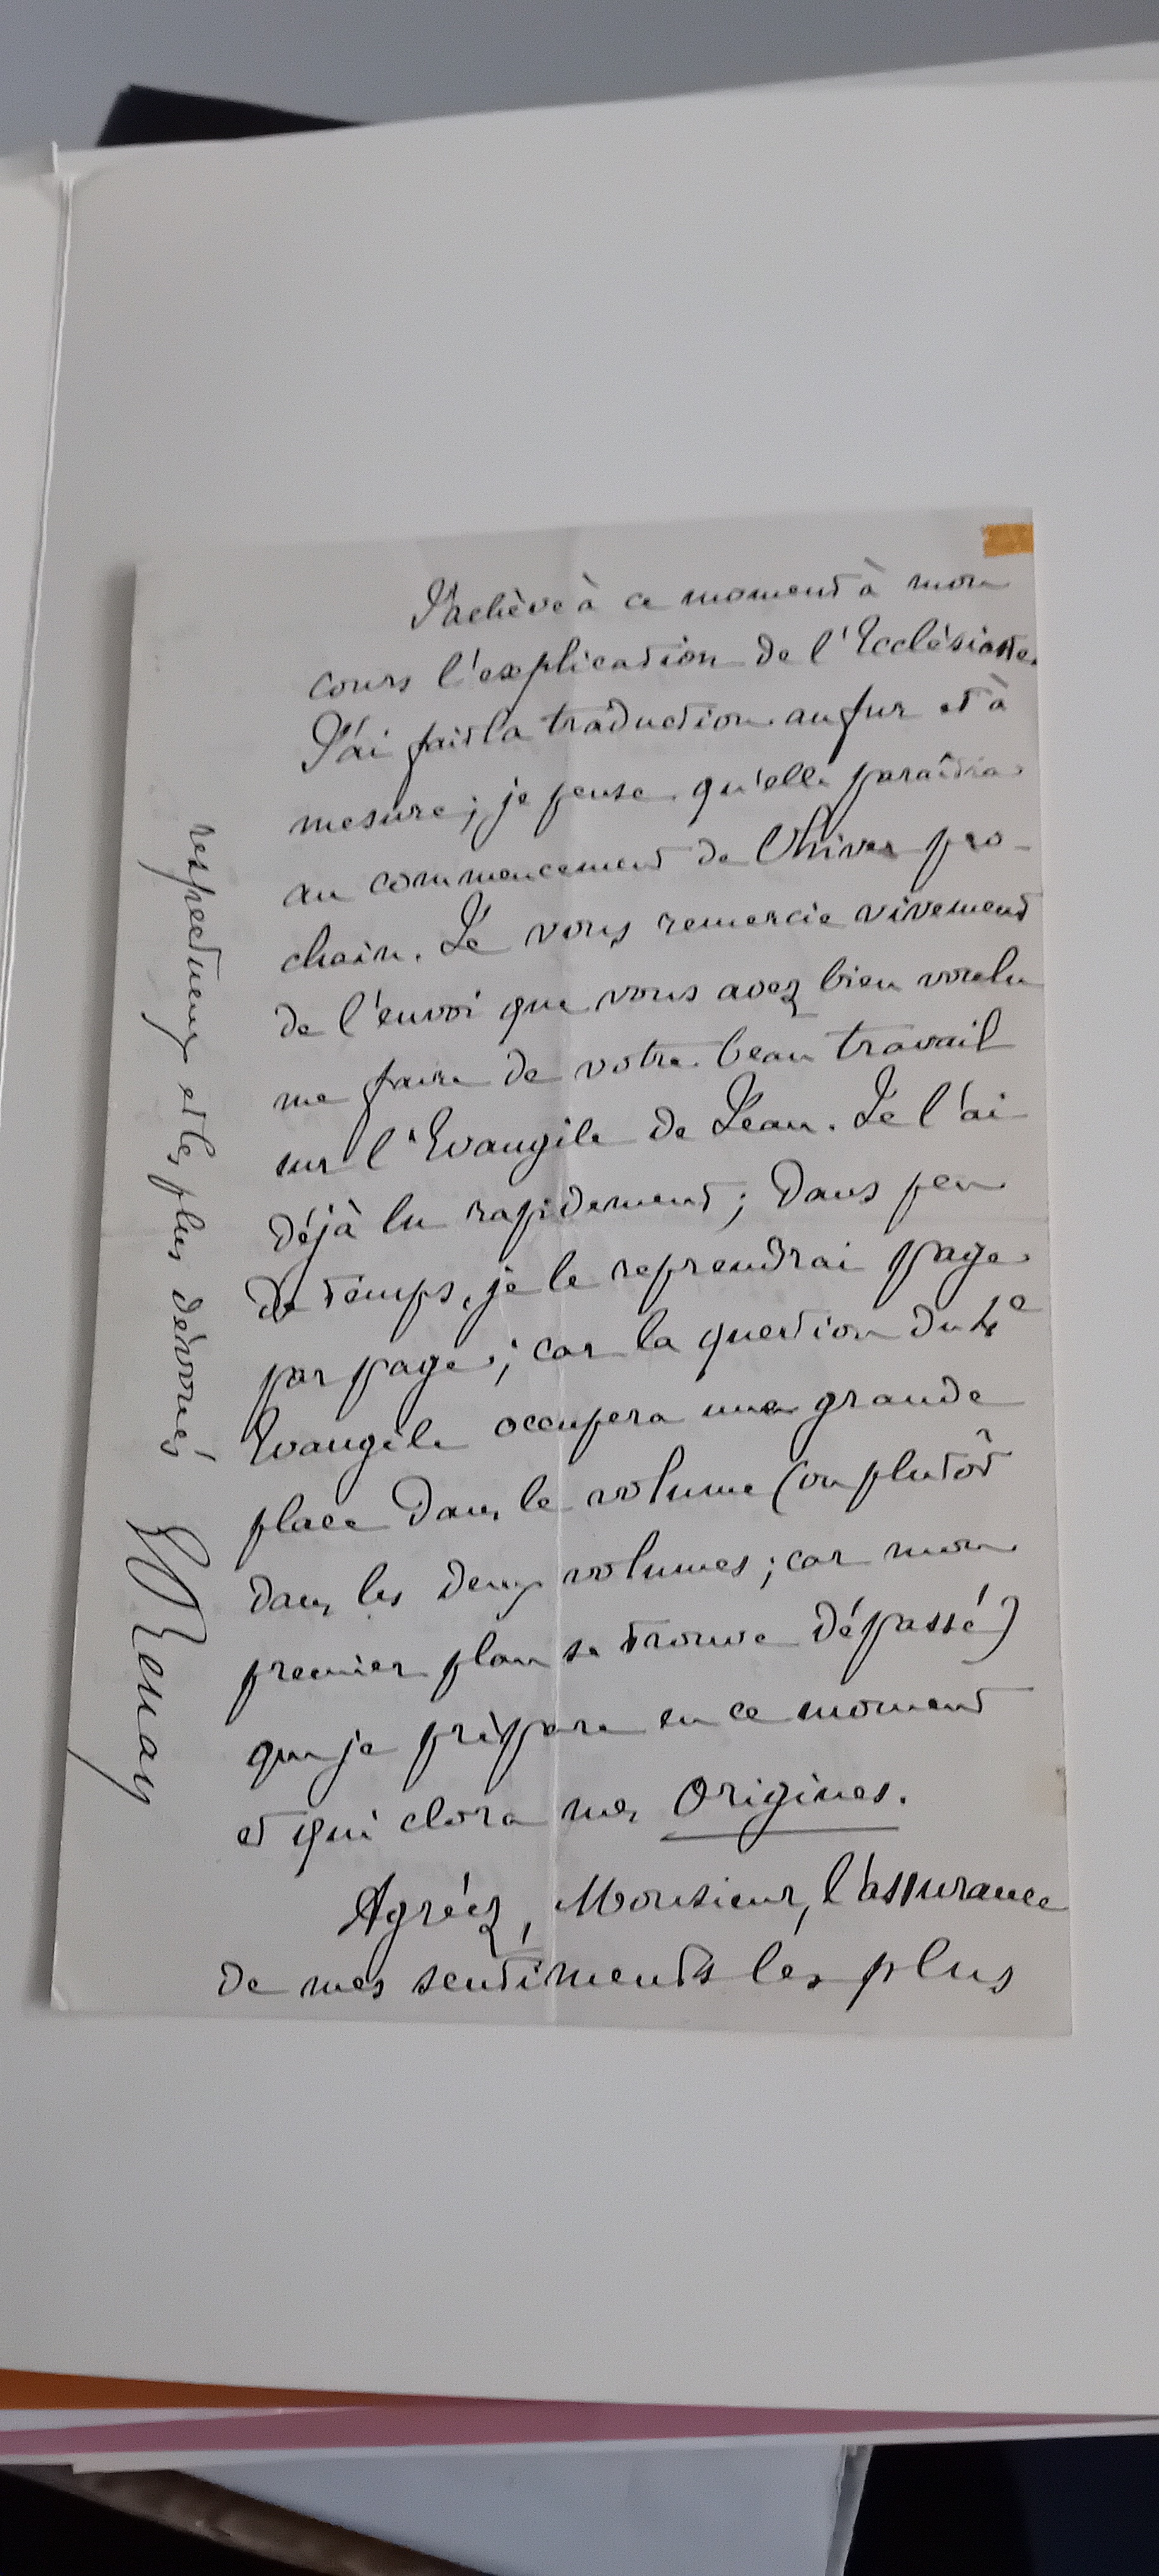 J'achève à ce moment à mon
cours l'explication de l'Ecclésiaste.
J'ai fait la traduction au fur et à
mesure ; je pense qu'elle paraîtra
au commencement de l'hiver pro-
chain. Je vous remercie vivement
de l'envoi que vous avez bien voulu
me faire de votre beau travail
sur l'Evangile de Jean. Je l'ai
déjà lu rapidement ; dans peu
de temps, je le reprendrai page
par page ; car la question du 4e
Evangile occupera une grande
place dans le volume (ou plutôt
dans les deux volumes ; car mon
premier plan se trouve dépassé)
que je prépare en ce moment
et qui clora mes Origines.
Agréez, Monsieur, l'assurance
de mes sentiments les plus
respectueux et les plus dévoués
E Renan